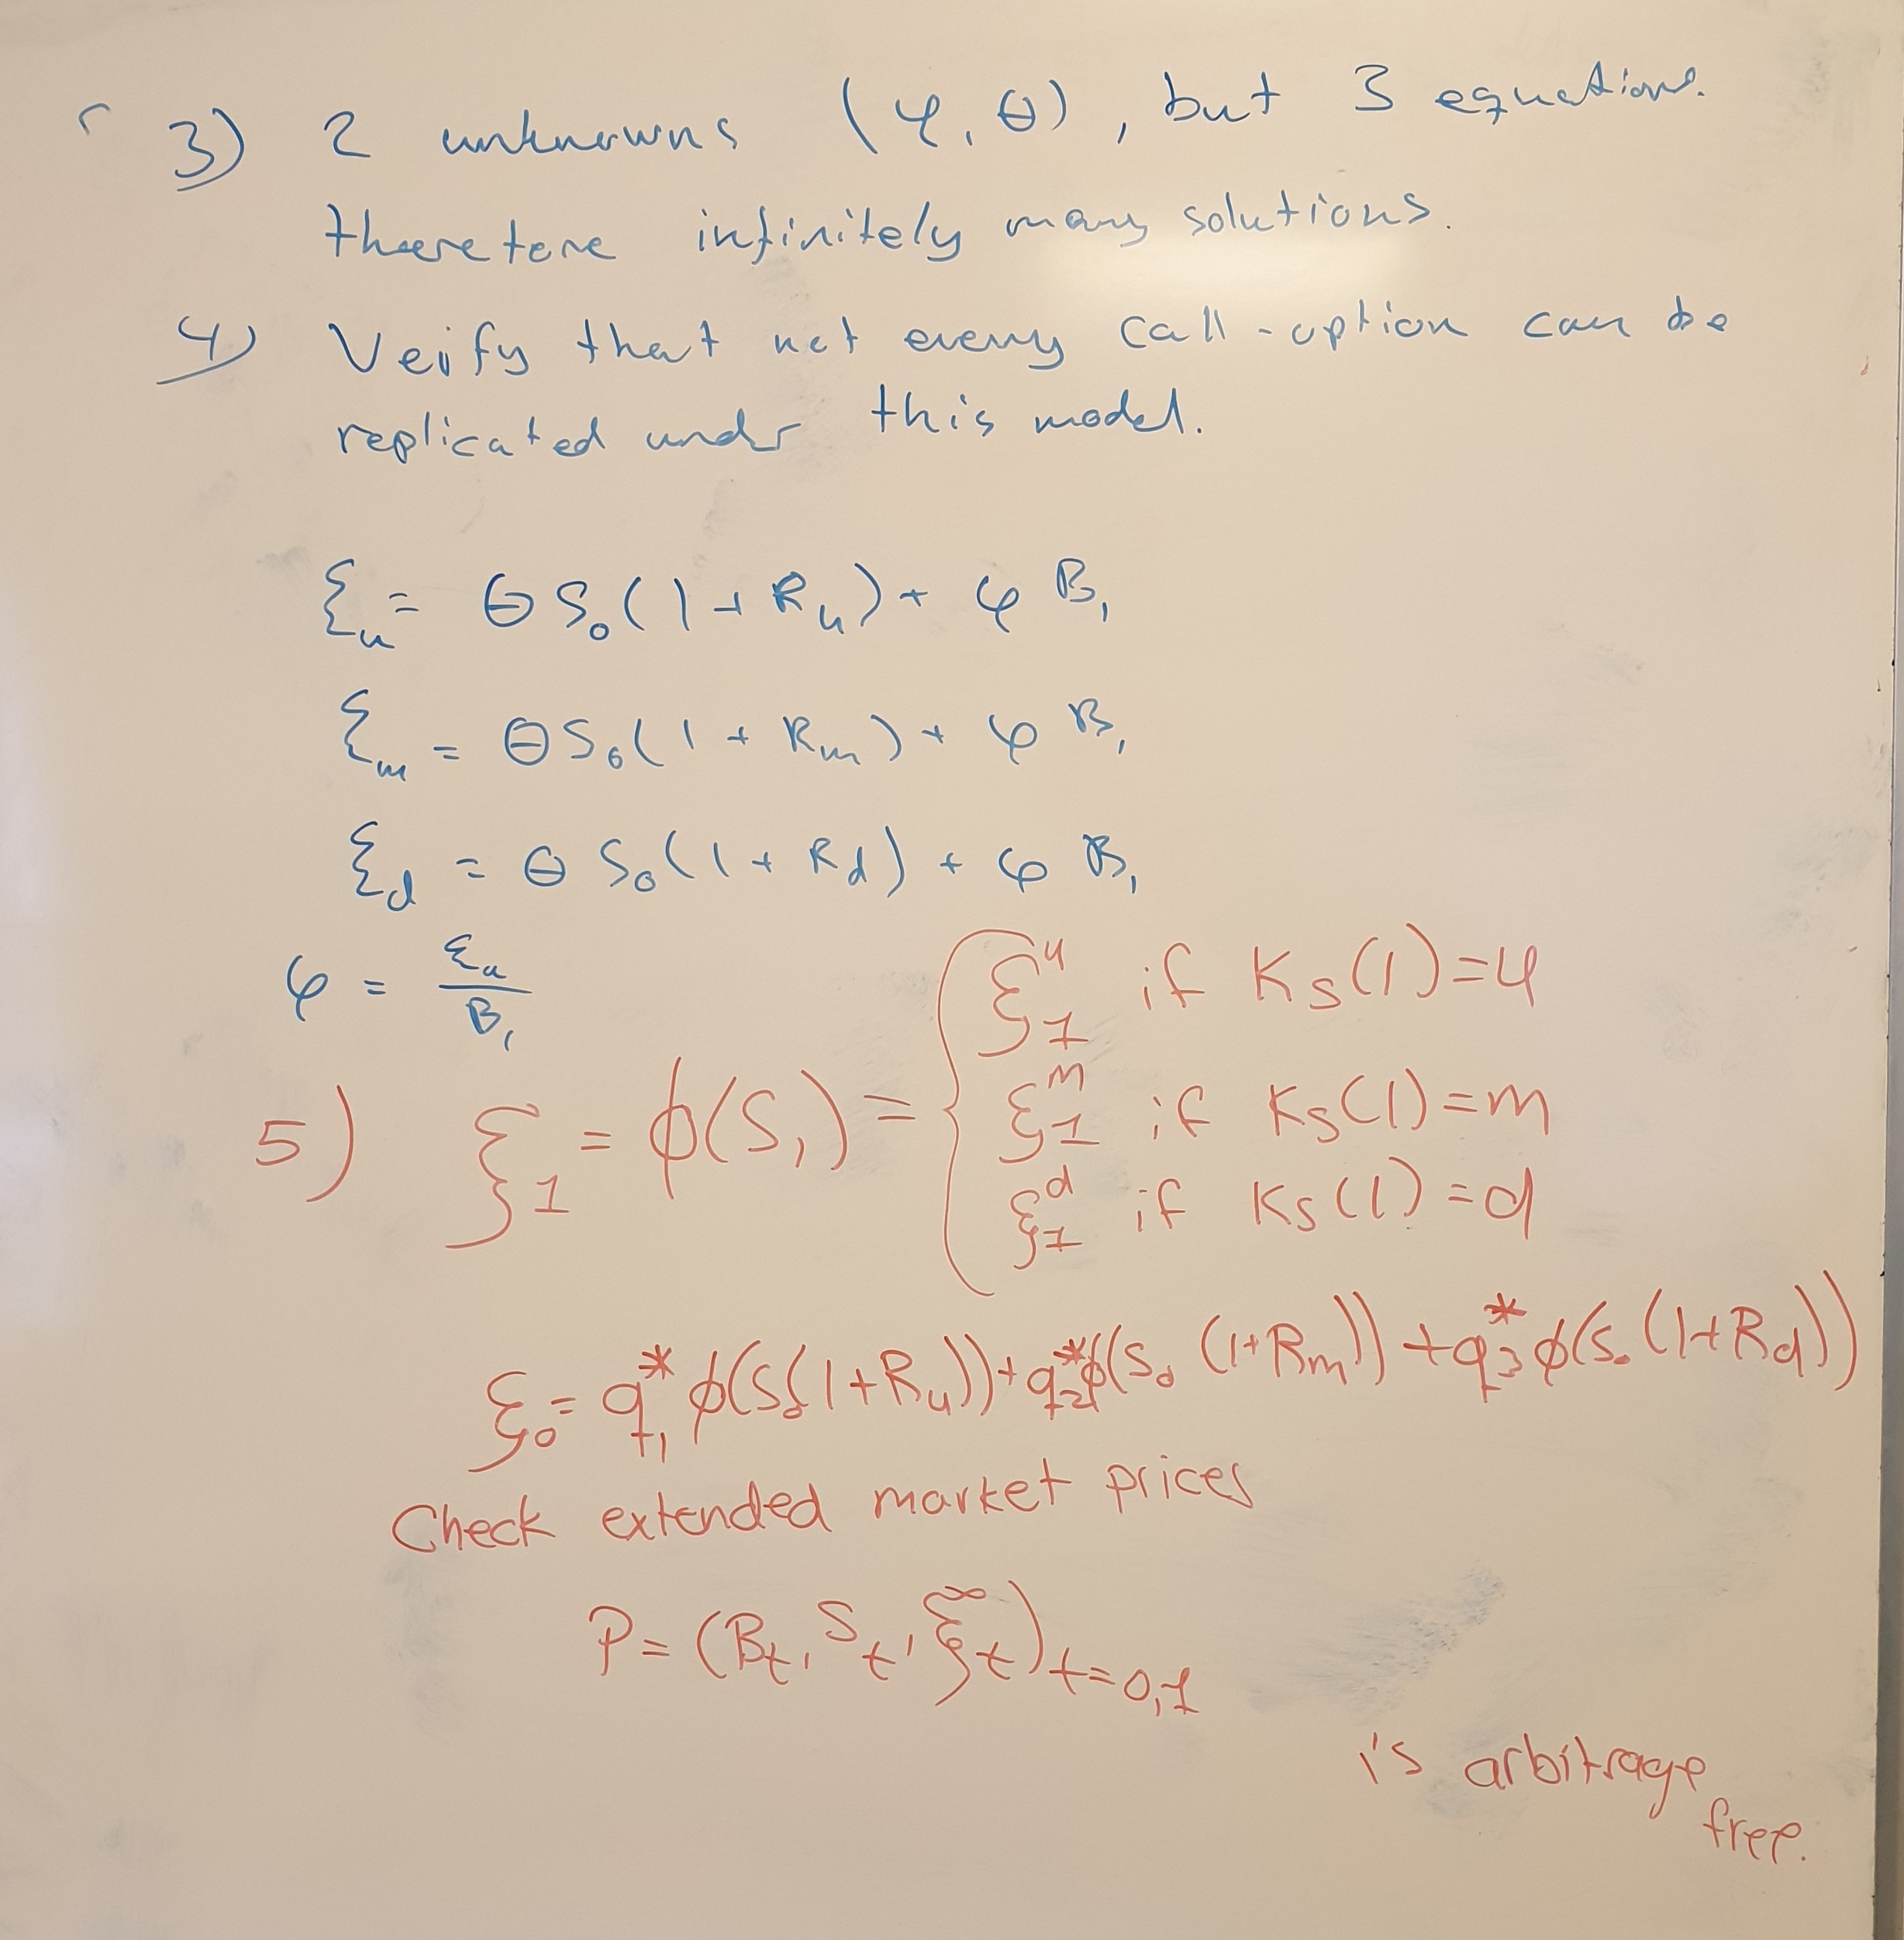 3) 2 unknowns (φ, θ), but 3 equations.
therefore infinitely many solutions.
4) Veify that not every call-option can be
replicated under this model.
ξ_u = θ S_0 (1 + R_u) + φ B_1
ξ_m = θ S_0 (1 + R_m) + φ B_1
ξ_d = θ S_0 (1 + R_d) + φ B_1
φ = ξ_u / B_1
5) ξ_1 = ϕ(S_1) = { ξ_1^u if K_S(1) = u
ξ_1^m if K_S(1) = m
ξ_1^d if K_S(1) = d
ξ_0 = q_1^* ϕ(S_0(1+R_u)) + q_2^* ϕ(S_0(1+R_m)) + q_3^* ϕ(S_0(1+R_d))
Check extended market prices
P = (B_t, S_t, ξ̃_t)_{t=0,1}
is arbitrage
free.